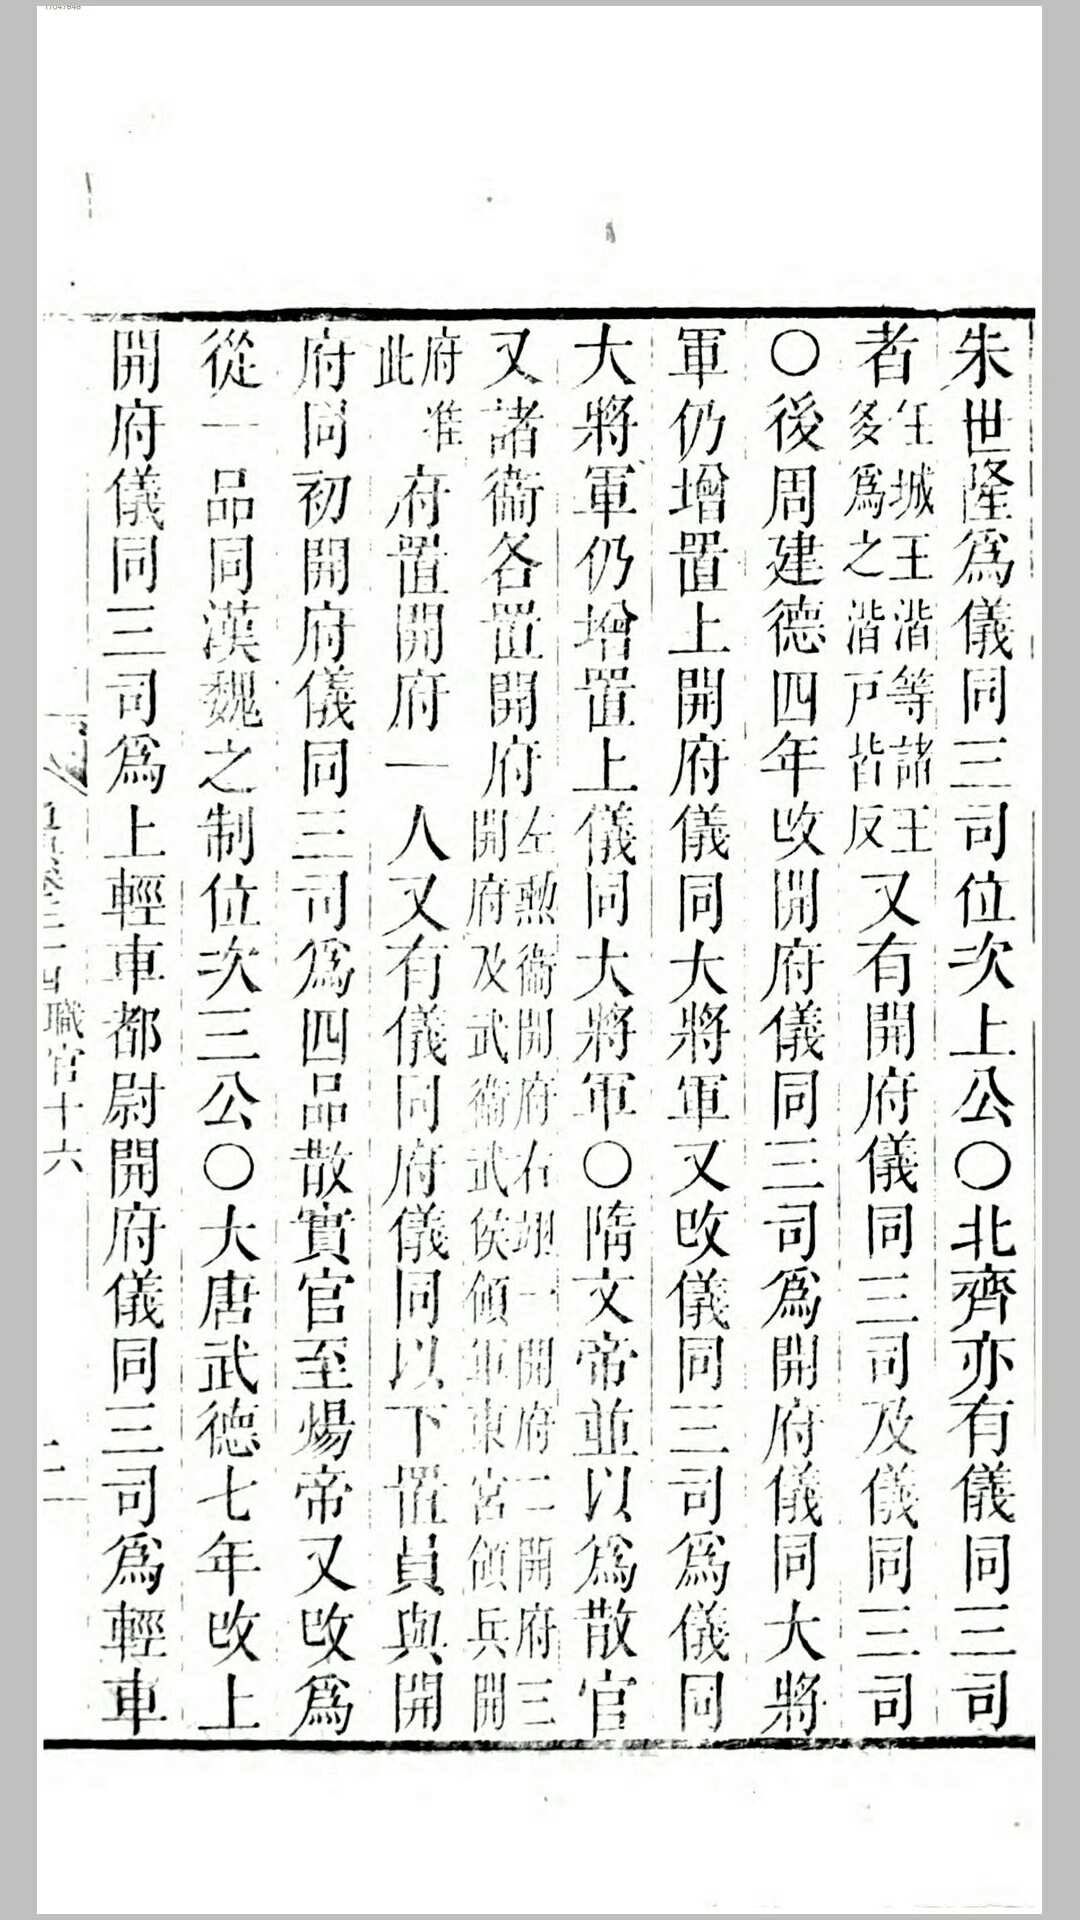 朱世隆爲儀同三司位次上公〇北齊亦有儀同三司
者任城王湝等諸王多爲之湝戸皆反又有開府儀同三司及儀同三司
〇後周建德四年改開府儀同三司爲開府儀同大將
軍仍增置上開府儀同大將軍又改儀同三司爲儀同
大將軍仍增置上儀同大將軍〇隋文帝並以爲散官
又諸衞各置開府左勲衞開府右翊一開府二開府三開府及武衞武侯領軍東宮領兵開
府准此府置開府一人又有儀同府儀同以下置員與開
府同初開府儀同三司爲四品散實官至煬帝又改爲
從一品同漢魏之制位次三公〇大唐武德七年改上
開府儀同三司爲上輕車都尉開府儀同三司爲輕車
職官十六